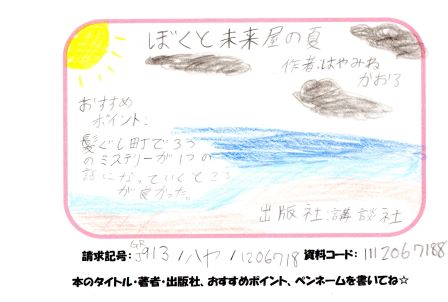 ぼくと未来屋の夏
作者:はやみね
かおる
おすすめ
ポイント:
髪ぐし町で3つ
のミステリーが1つの
話になっていくところ
が良かった。
出版社:講談社
請求記号: GR J913/ハヤ/1206718 資料コード: 1112067188
本のタイトル・著者・出版社、おすすめポイント、ペンネームを書いてね☆